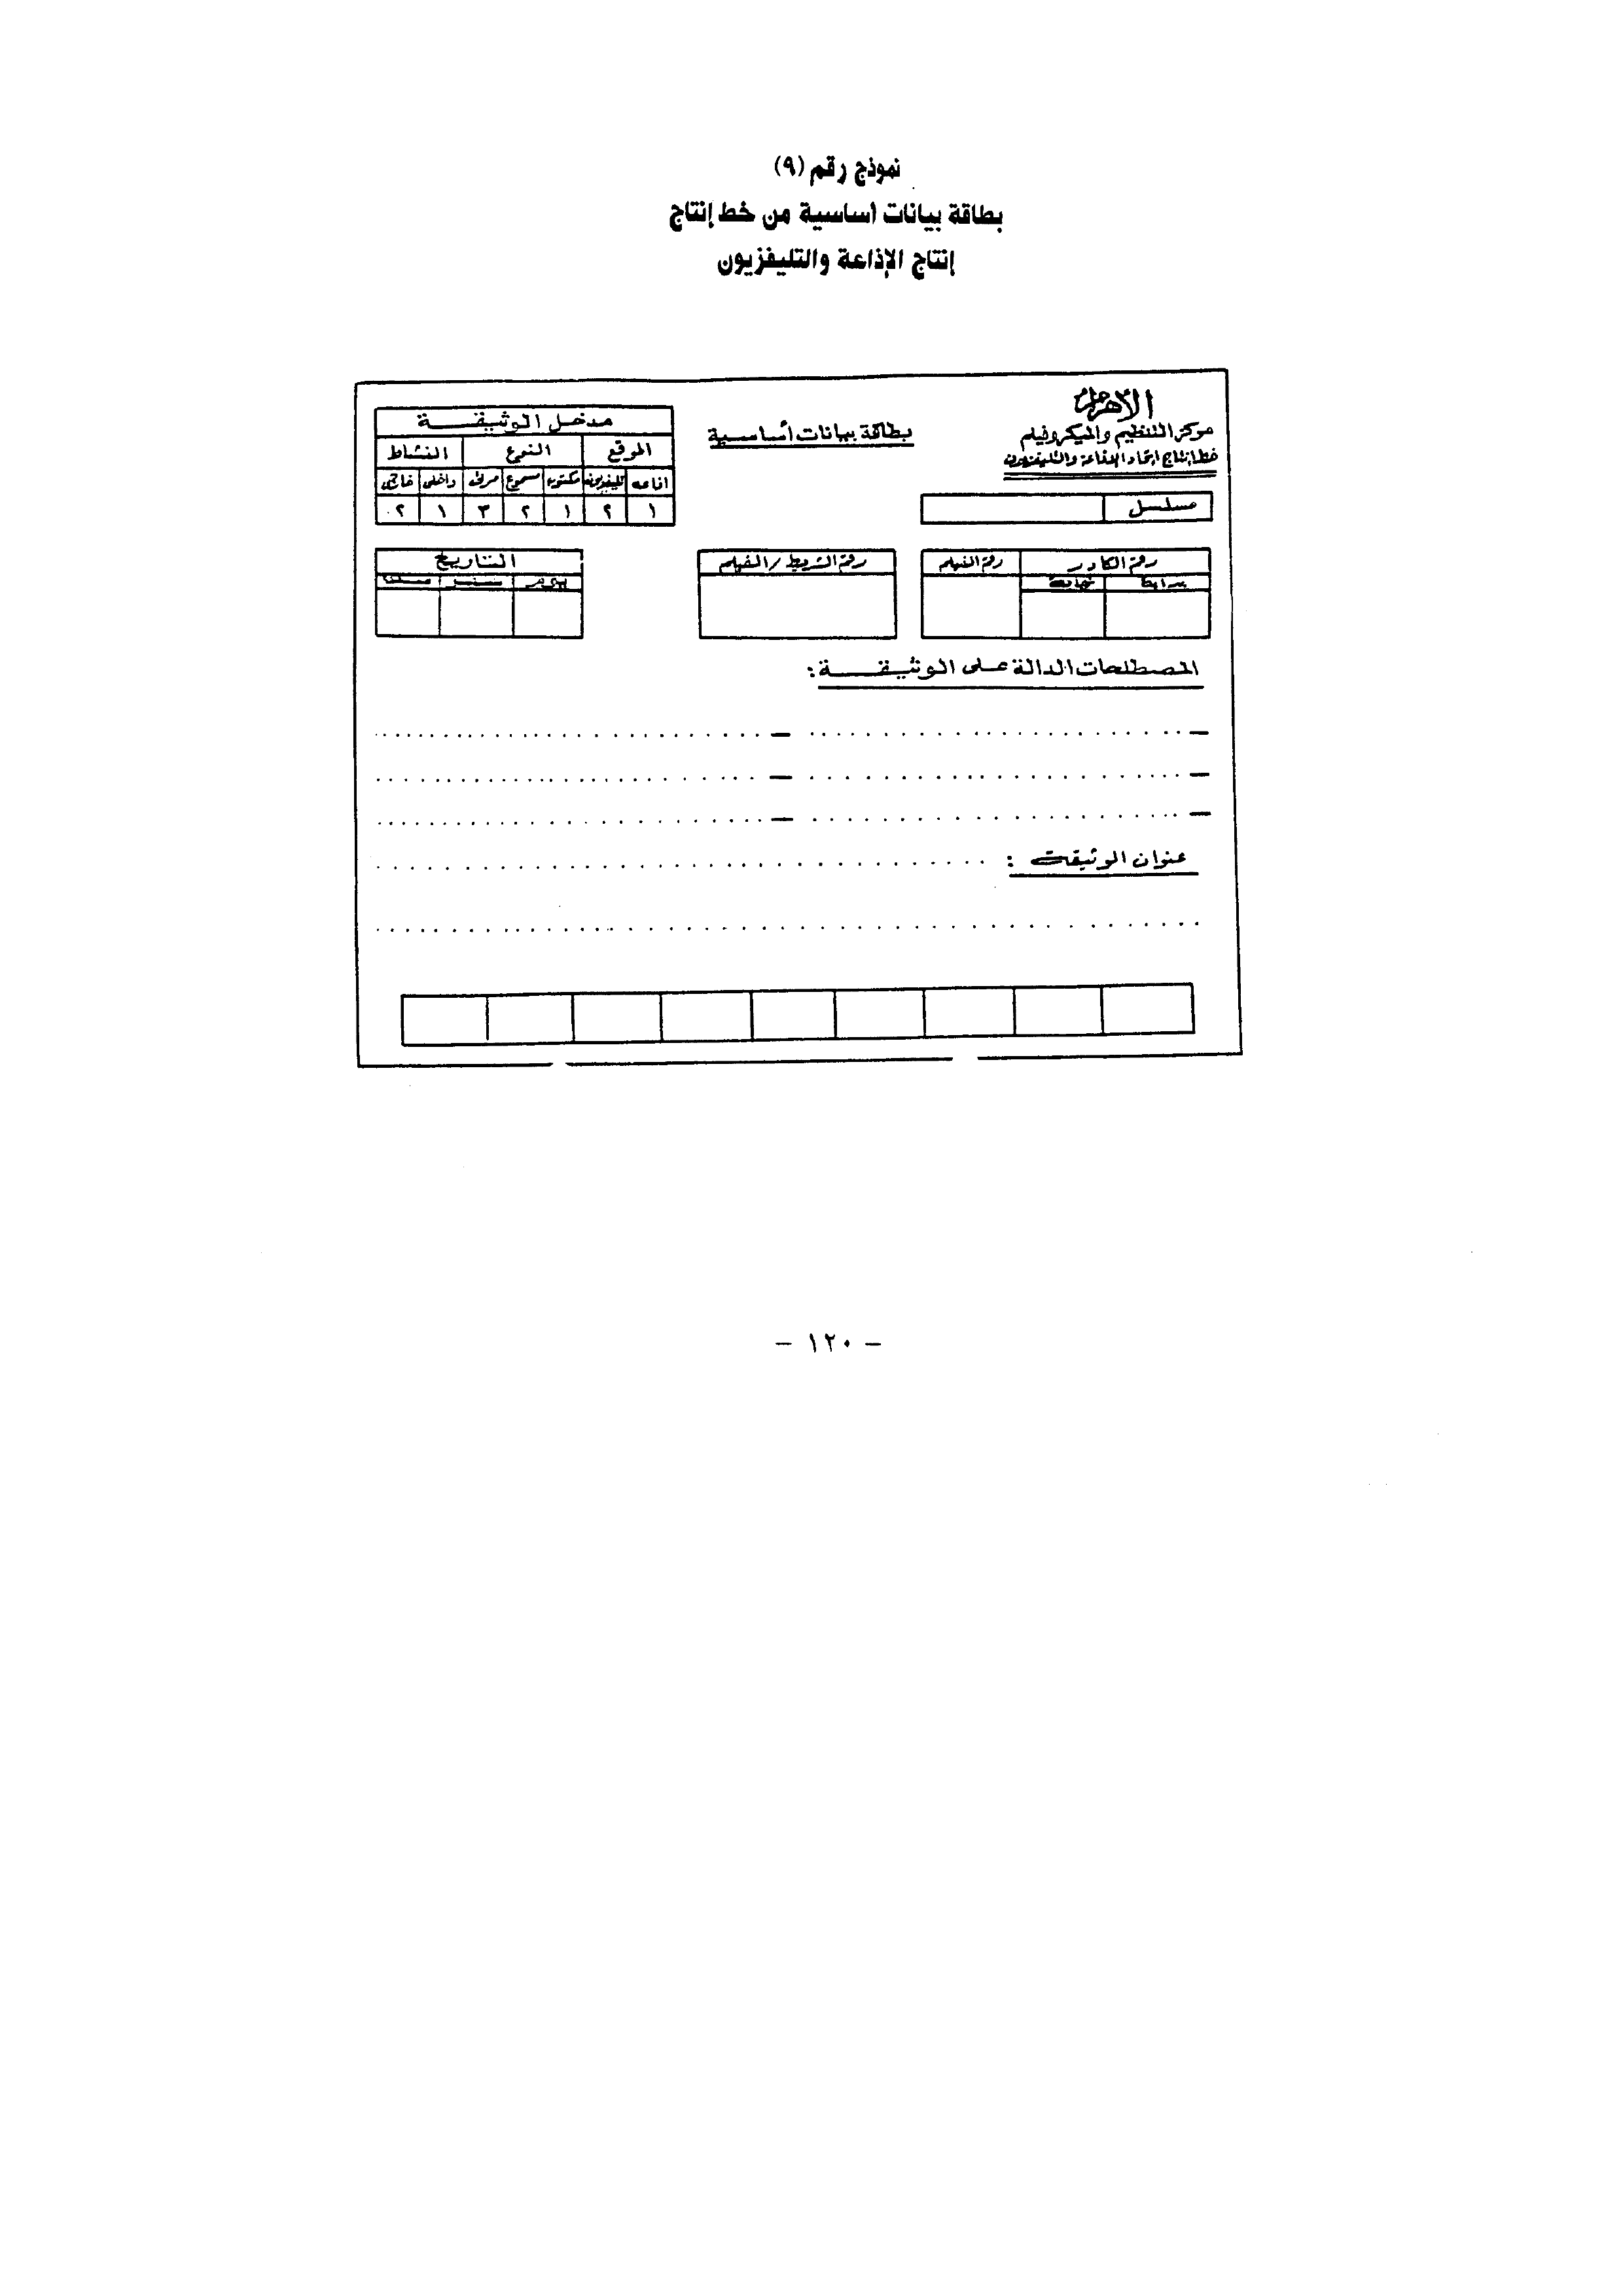 نموذج رقم (٩)
بطاقة بيانات أساسية من خط إنتاج
إنتاج الإذاعة والتليفزيون
الأهرام
مركز التنظيم والميكروفيلم
خط إنتاج اتحاد الإذاعة والتليفزيون
بطاقة بيانات أساسية
مدخل الوثيقة
الموقع النوع النشاط
اذاعه تليفزيون مكتوب مسموع مرئى داخلى خارجى
١ ٢ ١ ٢ ٣ ١ ٢
مسلسل
رقم الكادر رقم الفيلم رقم الشريط / الفيلم التاريخ
بداية نهاية يوم
المصطلحات الدالة على الوثيقة :
عنوان الوثيقة :
– ١٢٠ –